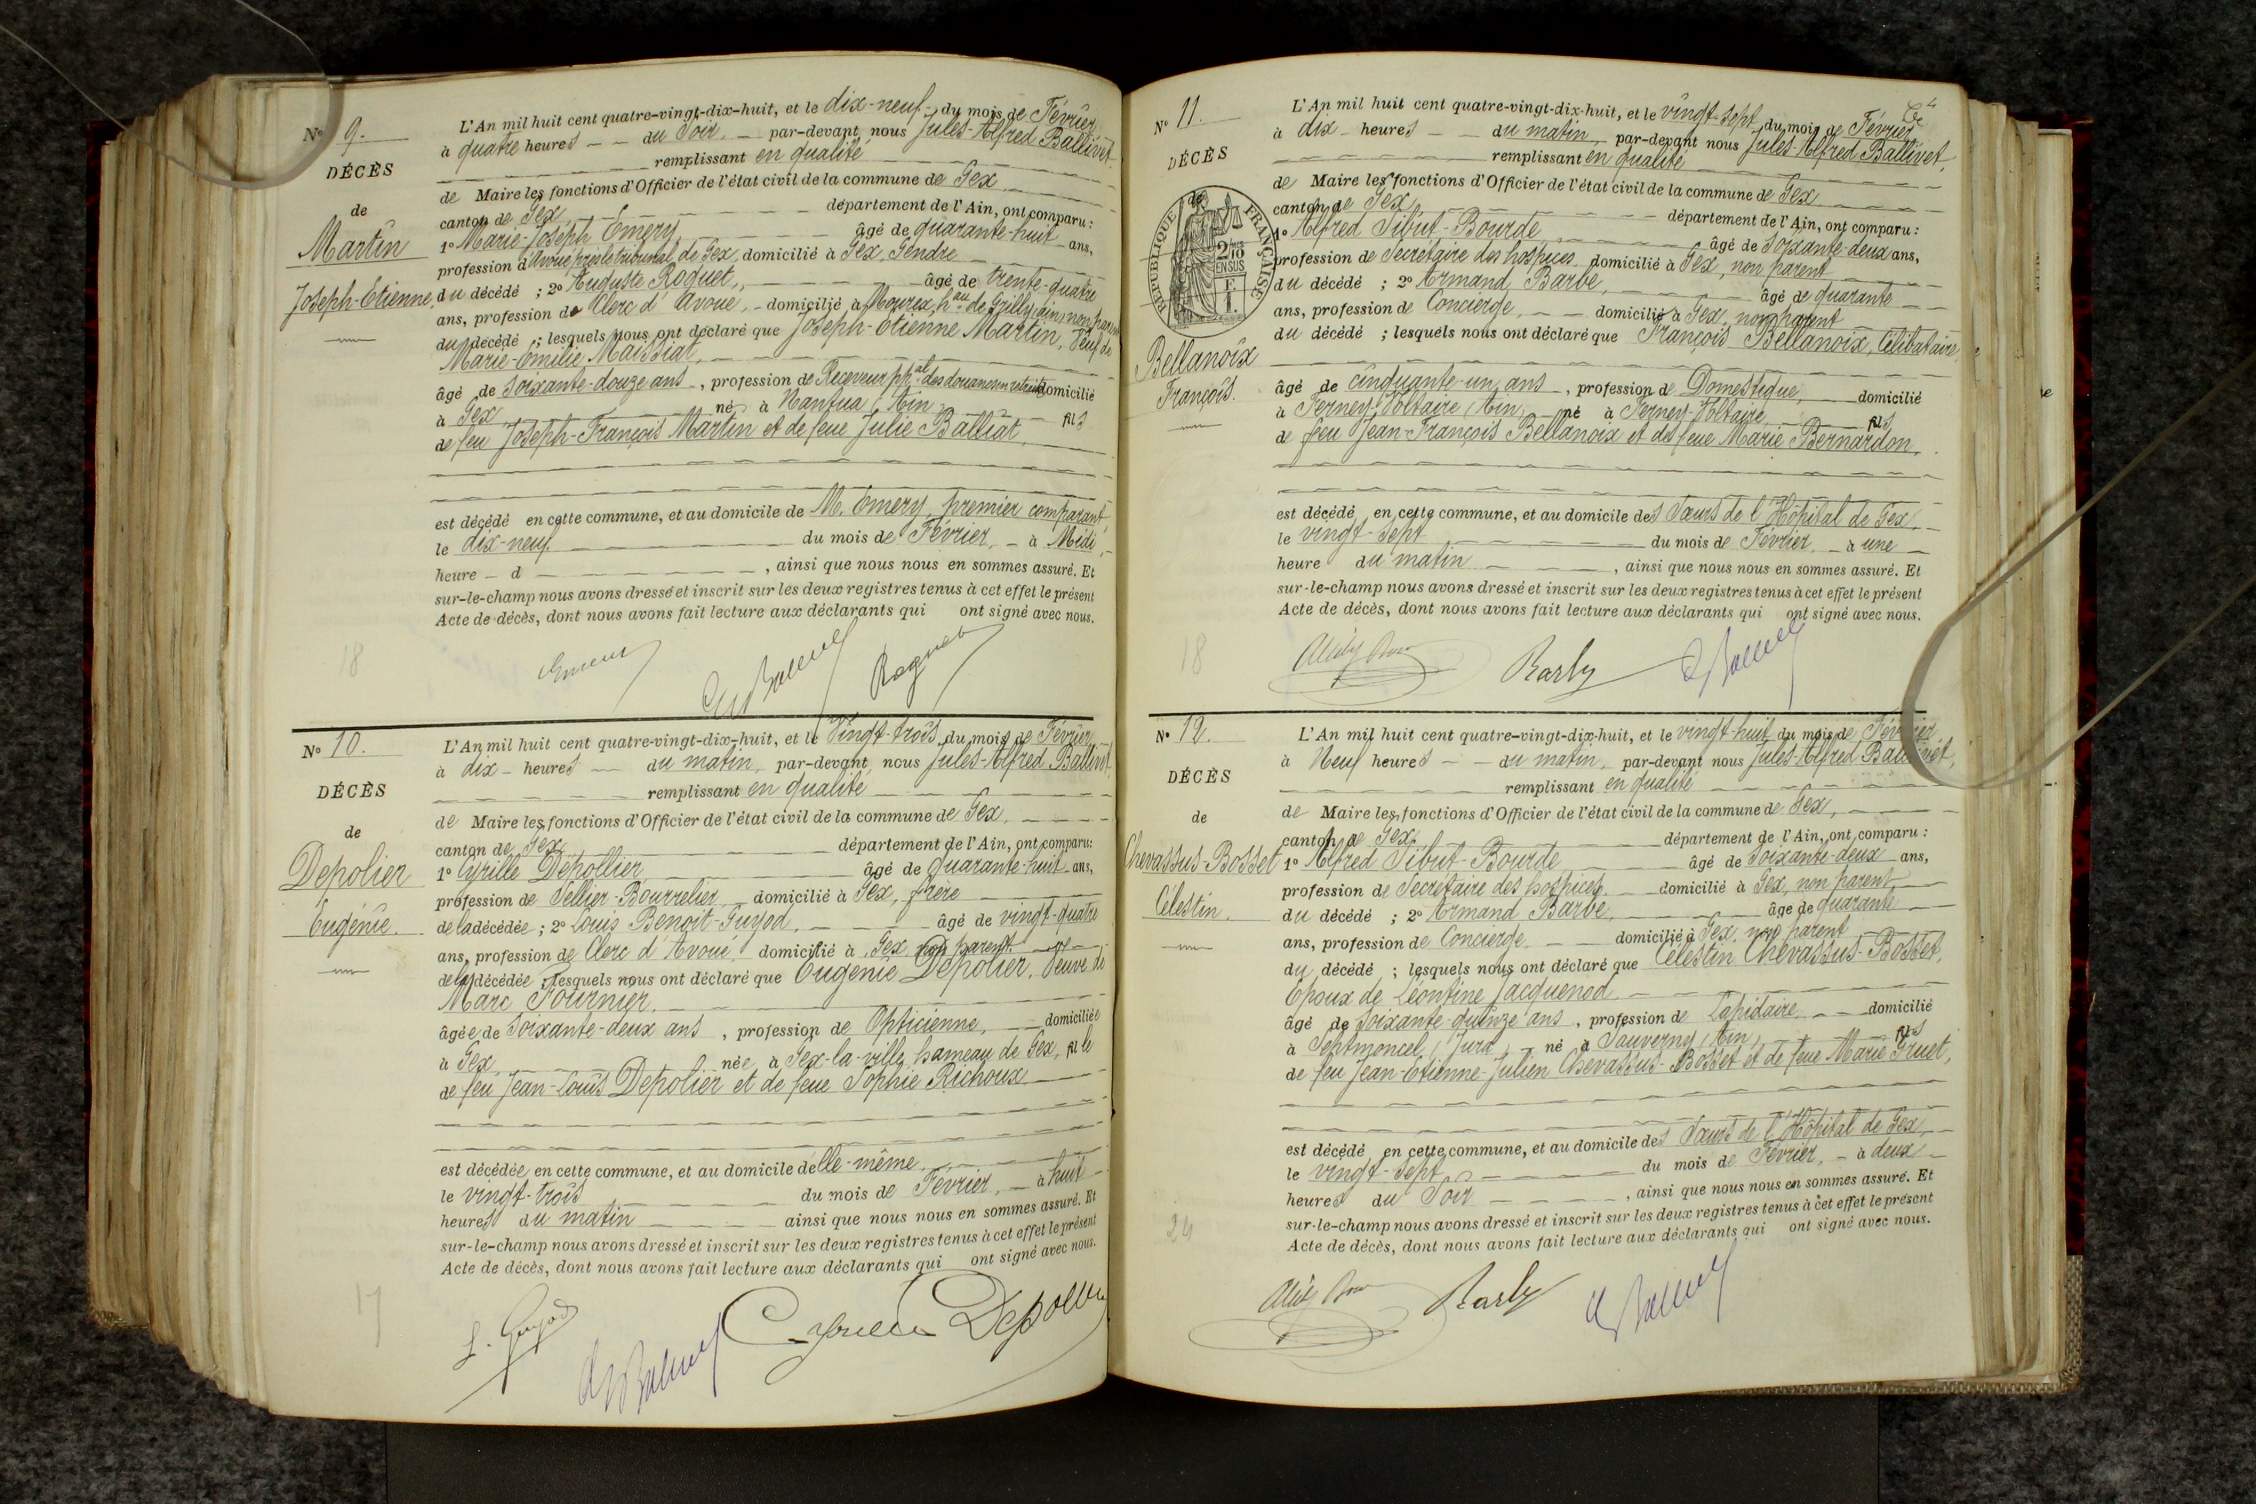 Nº 9.
DÉCÈS
de
Martin
Joseph-Etienne
L'An mil huit cent quatre-vingt-dix-huit, et le dix-neuf du mois de Février
à quatre heures du Soir, par-devant nous Jules-Alfred Ballivet
remplissant en qualité
de Maire les fonctions d'Officier de l'état civil de la commune de Gex
canton de Gex département de l'Ain, ont comparu :
1º Marie-Joseph Emery âgé de quarante-huit ans,
profession d'Avoué près le tribunal de Gex, domicilié à Gex, Gendre
du décédé ; 2º Auguste Roquet, âgé de trente-quatre
ans, profession de Clerc d'Avoué, domicilié à Mourex, hau de Grilly (Ain) non parent
du décédé ; lesquels nous ont déclaré que Joseph-Etienne Martin, Veuf de
Marie-Emilie Maissiat,
âgé de Soixante-douze ans, profession de Receveur phal des douanes en retraite domicilié
à Gex né à Nantua (Ain) fils
de feu Joseph-François Martin et de feue Julie Balliat
est décédé en cette commune, et au domicile de M. Emery, premier comparant,
le dix-neuf du mois de Février, à Midi,
heure d , ainsi que nous nous en sommes assuré. Et
sur-le-champ nous avons dressé et inscrit sur les deux registres tenus à cet effet le présent
Acte de décès, dont nous avons fait lecture aux déclarants qui ont signé avec nous.
18
Nº 10.
DÉCÈS
de
Depolier
Eugénie.
L'An mil huit cent quatre-vingt-dix-huit, et le Vingt-trois du mois de Février
à dix heures du matin, par-devant nous Jules-Alfred Ballivet,
remplissant en qualité
de Maire les fonctions d'Officier de l'état civil de la commune de Gex,
canton de Gex département de l'Ain, ont comparu :
1º Cyrille Depollier âgé de quarante-huit ans,
profession de Sellier-Bourrelier, domicilié à Gex, frère
de la décédée ; 2º Louis Benoit-Guyod, âgé de vingt-quatre
ans, profession de Clerc d'Avoué, domicilié à Gex non parent
de la décédée ; lesquels nous ont déclaré que Eugénie Depolier, Veuve de
Marc Fournier,
âgée de Soixante-deux ans, profession de Opticienne, domiciliée
à Gex, née à Gex-la-ville, hameau de Gex, fille
de feu Jean-Louis Depolier et de feue Sophie Richoux
est décédée en cette commune, et au domicile d'elle-même,
le vingt-trois du mois de Février, à huit
heures du matin ainsi que nous nous en sommes assuré. Et
sur-le-champ nous avons dressé et inscrit sur les deux registres tenus à cet effet le présent
Acte de décès, dont nous avons fait lecture aux déclarants qui ont signé avec nous.
17
L. Guyod
Nº 11.
DÉCÈS
de
RÉPUBLIQUE FRANÇAISE
2/10 EN SUS
Bellanoix
François.
L'An mil huit cent quatre-vingt-dix-huit, et le vingt-sept du mois de Février
à dix heures du matin, par-devant nous Jules-Alfred Ballivet,
remplissant en qualité
de Maire les fonctions d'Officier de l'état civil de la commune de Gex
canton de Gex, département de l'Ain, ont comparu :
1º Alfred Sibut-Bourde âgé de Soixante-deux ans,
profession de Secrétaire des hospices domicilié à Gex, non parent
du décédé ; 2º Armand Barbe, âgé de quarante
ans, profession de Concierge, domicilié à Gex, non parent
du décédé ; lesquels nous ont déclaré que François Bellanoix, Célibataire,
âgé de cinquante-un ans, profession de Domestique, domicilié
à Ferney-Voltaire (Ain) né à Ferney-Voltaire, fils
de feu Jean-François Bellanoix et de feue Marie Bernardon,
est décédé en cette commune, et au domicile des Sœurs de l'Hôpital de Gex,
le vingt-sept du mois de Février, à une
heure du matin , ainsi que nous nous en sommes assuré. Et
sur-le-champ nous avons dressé et inscrit sur les deux registres tenus à cet effet le présent
Acte de décès, dont nous avons fait lecture aux déclarants qui ont signé avec nous.
18
Nº 12.
DÉCÈS
de
Chevassus-Bosset
Célestin.
L'An mil huit cent quatre-vingt-dix-huit, et le vingt-huit du mois de Février
à Neuf heures du matin, par-devant nous Jules-Alfred Ballivet,
remplissant en qualité
de Maire les fonctions d'Officier de l'état civil de la commune de Gex,
canton de Gex, département de l'Ain, ont comparu :
1º Alfred Sibut-Bourde âgé de Soixante-deux ans,
profession de Secrétaire des hospices domicilié à Gex, non parent
du décédé ; 2º Armand Barbe, âgé de quarante
ans, profession de Concierge, domicilié à Gex, non parent
du décédé ; lesquels nous ont déclaré que Célestin Chevassus-Bosset,
Epoux de Léontine Jacquenod
âgé de Soixante-quinze ans, profession de Lapidaire domicilié
à Septmoncel (Jura) né à Sauverny (Ain) fils
de feu Jean-Etienne-Julien Chevassus-Bosset et de feue Marie Gruet,
est décédé en cette commune, et au domicile des Sœurs de l'Hôpital de Gex,
le vingt-sept du mois de Février, à deux
heures du Soir , ainsi que nous nous en sommes assuré. Et
sur-le-champ nous avons dressé et inscrit sur les deux registres tenus à cet effet le présent
Acte de décès, dont nous avons fait lecture aux déclarants qui ont signé avec nous.
24